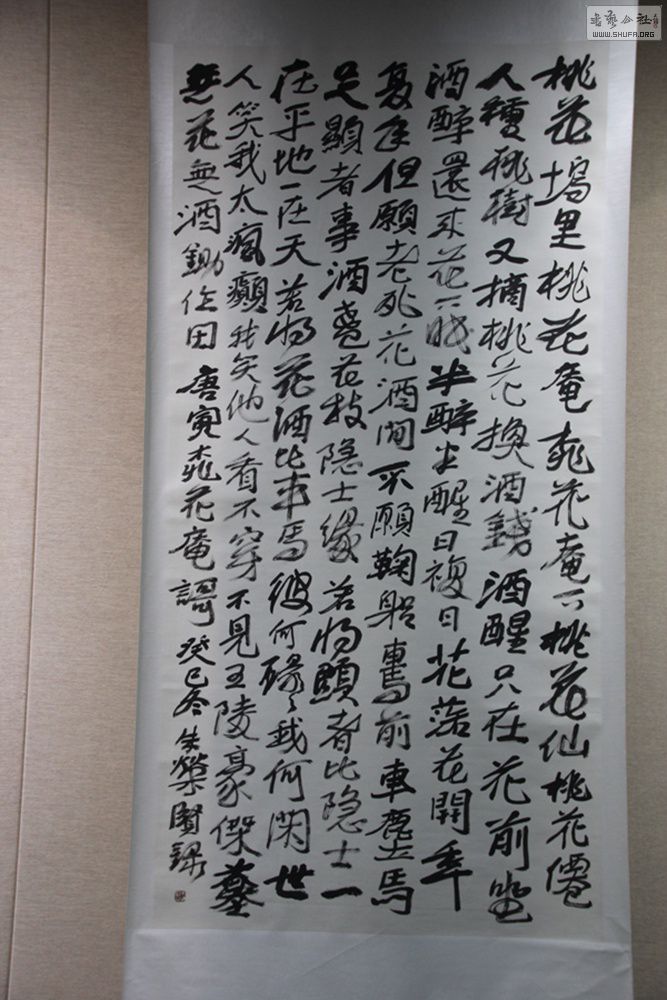 桃花塢里桃花庵桃花庵下桃花仙桃花僊
人種桃樹又摘桃花換酒錢酒醒只在花前坐
酒醉還来花下眠半醉半醒日複日花落花開年
复年但願老死花酒間不願鞠躬車馬前車塵馬
足顯者事酒盞花枝隐士緣若将顯者比隐士一
在平地一在天若将花酒比車馬彼何碌碌我何閑世
人笑我太瘋癲我笑他人看不穿不見五陵豪傑墓
無花無酒鋤作田 唐寅桃花庵謌 癸巳冬朱榮賢録
書藝公社
WWW.SHUFA.ORG